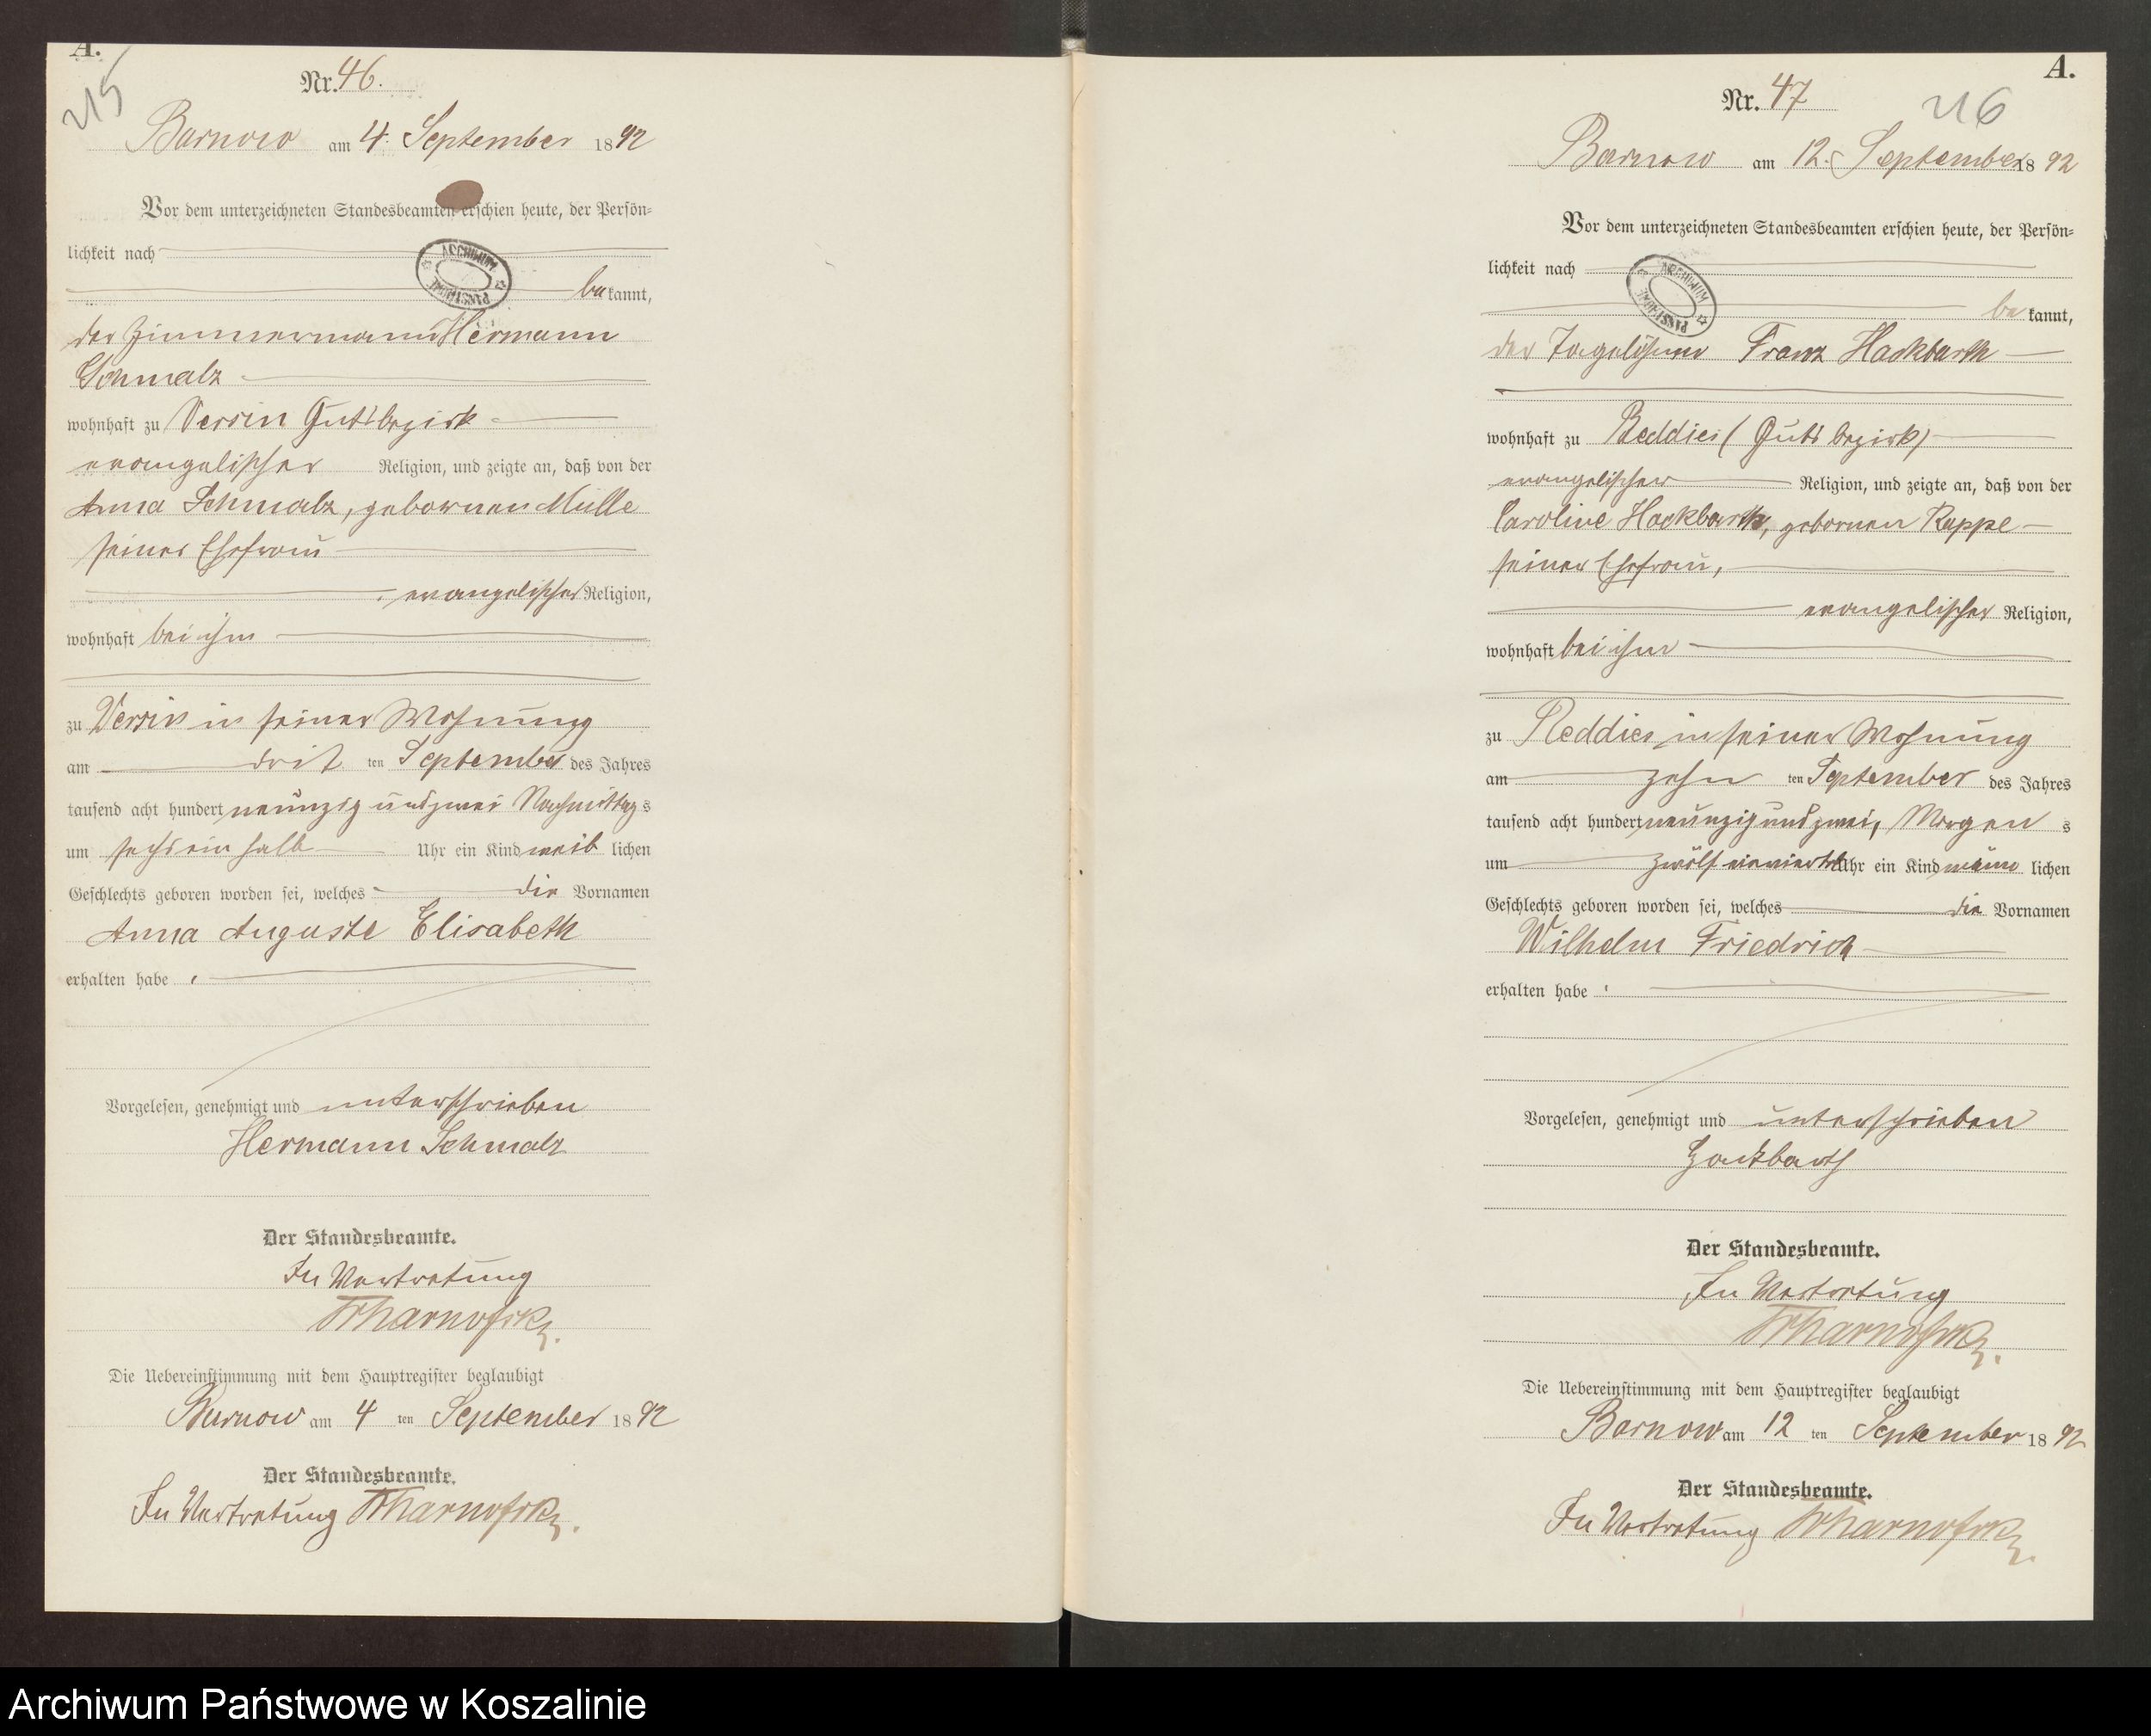 A.
215
Nr. 46.
Barnow am 4. September 1892
Vor dem unterzeichneten Standesbeamten erschien heute, der Persön-
lichkeit nach
bekannt,
der Zimmermann Hermann
Schmalz
wohnhaft zu Versin Gutsbezirk
evangelischer Religion, und zeigte an, daß von der
Anna Schmalz, gebornen Mülle
seiner Ehefrau
evangelischer Religion,
wohnhaft bei ihm
zu Versin in seiner Wohnung
am drit ten September des Jahres
tausend acht hundert neunzig und zwei Nachmittags
um sechs ein halb Uhr ein Kind weiblichen
Geschlechts geboren worden sei, welches die Vornamen
Anna Auguste Elisabeth
erhalten habe.
Vorgelesen, genehmigt und unterschrieben
Hermann Schmalz
Der Standesbeamte.
In Vertretung
Die Uebereinstimmung mit dem Hauptregister beglaubigt
Barnow am 4 ten September 1892
Der Standesbeamte.
In Vertretung
A.
Nr. 47
216
Barnow am 12. September 1892
Vor dem unterzeichneten Standesbeamten erschien heute, der Persön-
lichkeit nach
bekannt,
der Tagelöhner Franz Hackbarth
wohnhaft zu Reddies (Gutsbezirk)
evangelischer Religion, und zeigte an, daß von der
Caroline Hackbarth, gebornen Rappe
seiner Ehefrau,
evangelischer Religion,
wohnhaft bei ihm
zu Reddies in seiner Wohnung
am zehn ten September des Jahres
tausend acht hundert neunzig und zwei, Morgens
um zwölf einviertel Uhr ein Kind männlichen
Geschlechts geboren worden sei, welches die Vornamen
Wilhelm Friedrich
erhalten habe.
Vorgelesen, genehmigt und unterschrieben
Hackbarth
Der Standesbeamte.
In Vertretung
Die Uebereinstimmung mit dem Hauptregister beglaubigt
Barnow am 12 ten September 1892
Der Standesbeamte.
In Vertretung
ARCHIWUM PAŃSTWOWE
ARCHIWUM PAŃSTWOWE
Archiwum Państwowe w Koszalinie